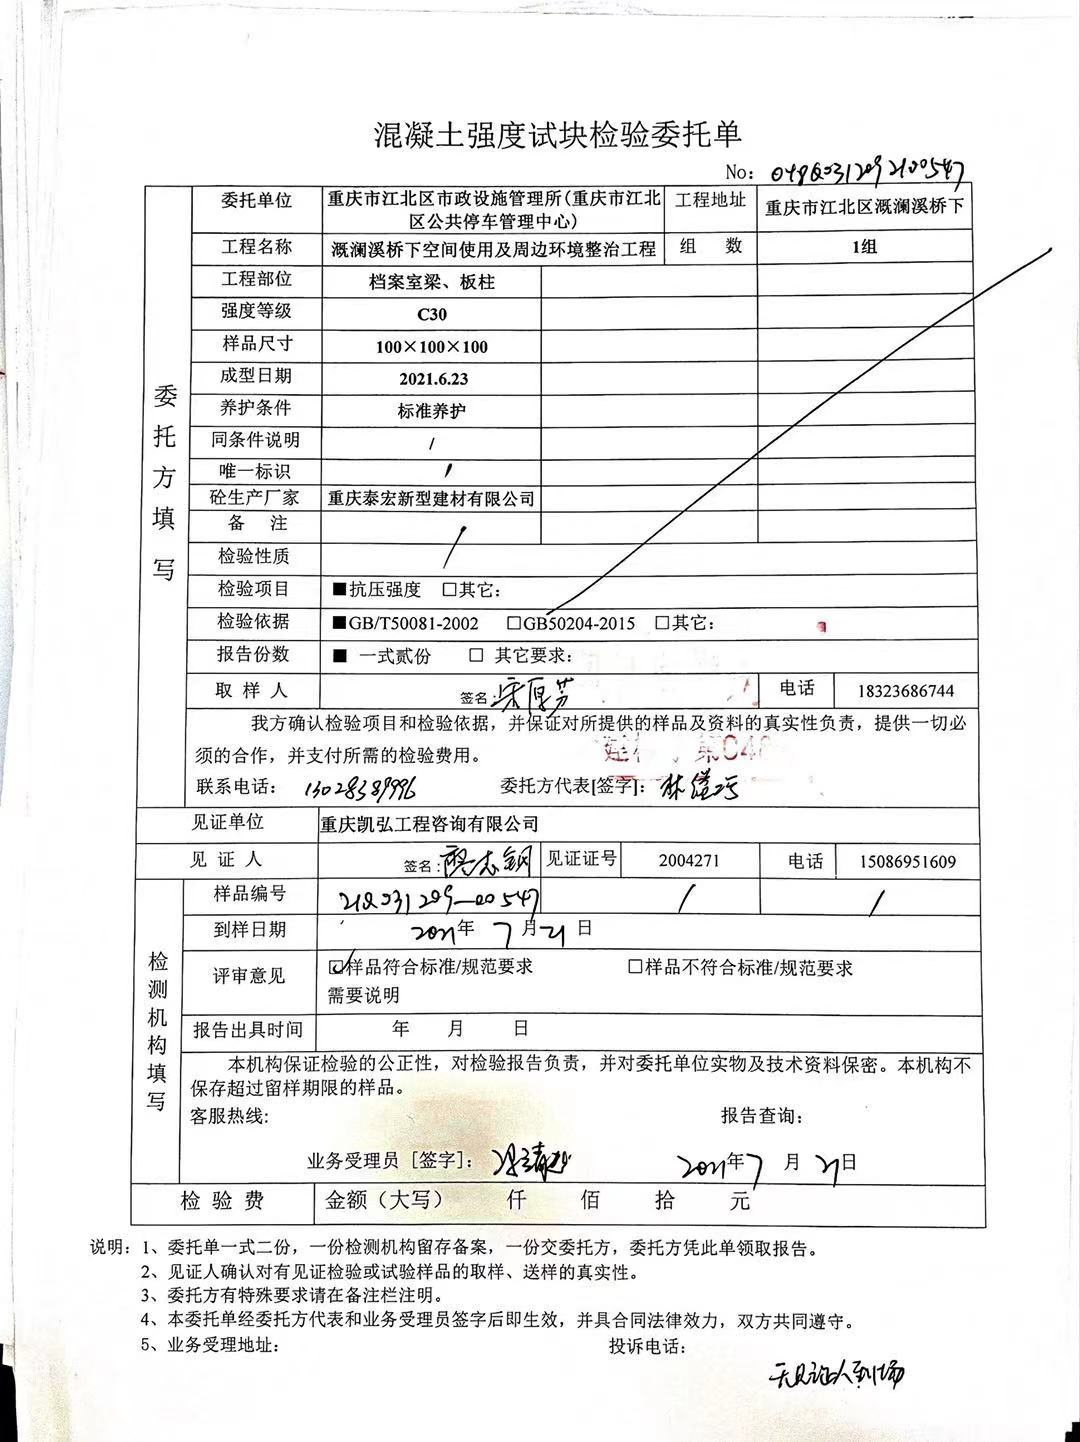 混凝土强度试块检验委托单
No: 048Q0312092100547
委托方填写
委托单位 重庆市江北区市政设施管理所(重庆市江北区公共停车管理中心) 工程地址 重庆市江北区溉澜溪桥下
工程名称 溉澜溪桥下空间使用及周边环境整治工程 组 数 1组
工程部位 档案室梁、板柱
强度等级 C30
样品尺寸 100×100×100
成型日期 2021.6.23
养护条件 标准养护
同条件说明 /
唯一标识 /
砼生产厂家 重庆泰宏新型建材有限公司
备 注 /
检验性质
检验项目 ■抗压强度 □其它:
检验依据 ■GB/T50081-2002 □GB50204-2015 □其它:
报告份数 ■ 一式贰份 □ 其它要求:
取 样 人 签名: 宋厚芳 电话 18323686744
我方确认检验项目和检验依据，并保证对所提供的样品及资料的真实性负责，提供一切必
须的合作，并支付所需的检验费用。
第C46
联系电话: 13028389996 委托方代表[签字]:
见证单位 重庆凯弘工程咨询有限公司
见 证 人 签名: 志钢 见证证号 2004271 电话 15086951609
检测机构填写
样品编号 21Q031209-00547 / /
到样日期 2021年 7月21日
评审意见 ☑样品符合标准/规范要求 □样品不符合标准/规范要求
需要说明
报告出具时间 年 月 日
本机构保证检验的公正性，对检验报告负责，并对委托单位实物及技术资料保密。本机构不
保存超过留样期限的样品。
客服热线: 报告查询:
业务受理员 [签字]: 2021年7月21日
检 验 费 金额（大写） 仟 佰 拾 元
说明: 1、委托单一式二份，一份检测机构留存备案，一份交委托方，委托方凭此单领取报告。
2、见证人确认对有见证检验或试验样品的取样、送样的真实性。
3、委托方有特殊要求请在备注栏注明。
4、本委托单经委托方代表和业务受理员签字后即生效，并具合同法律效力，双方共同遵守。
5、业务受理地址: 投诉电话:
无见证人到场